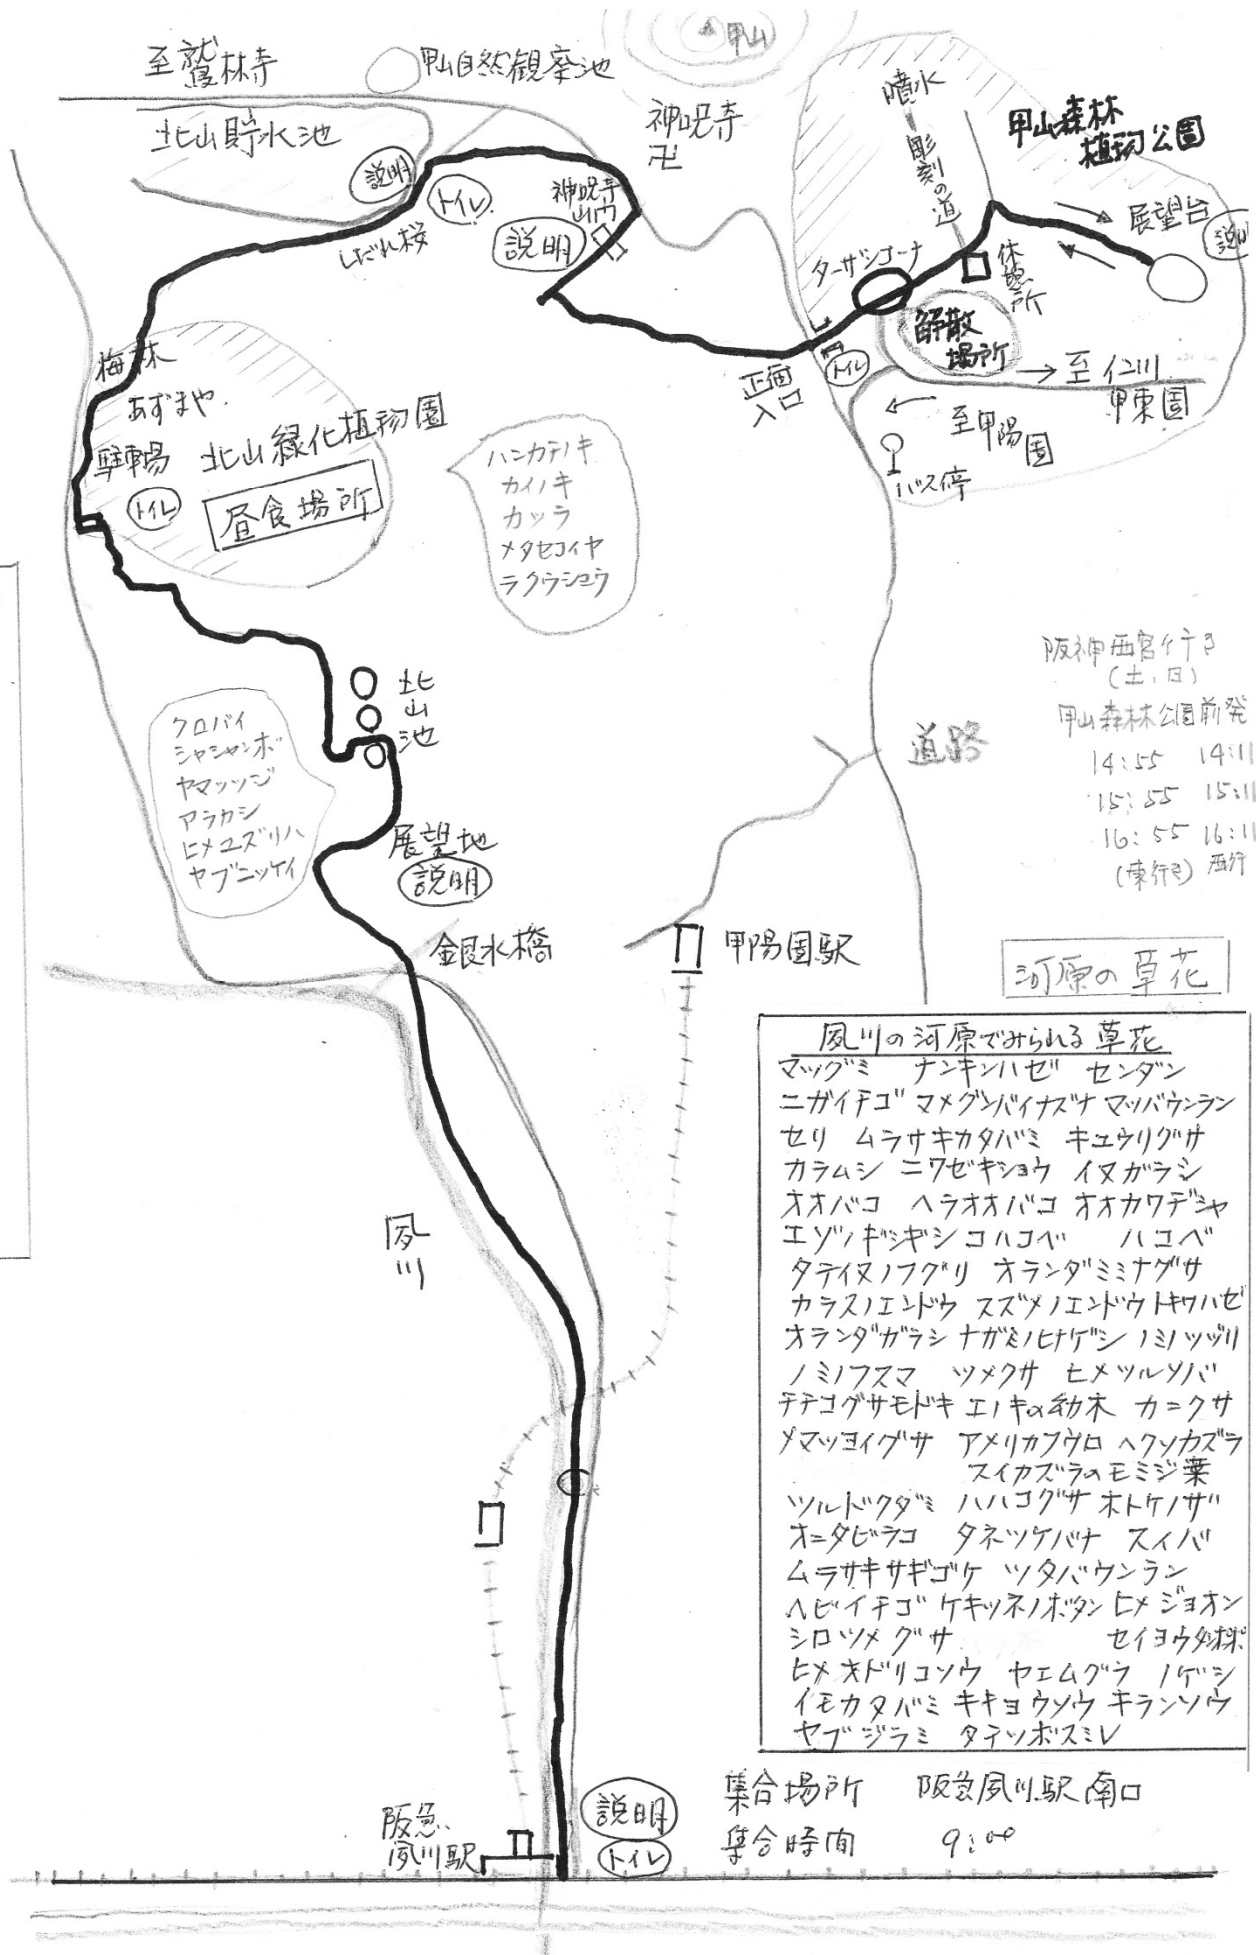 甲山
至鷲林寺
甲山自然観察池
北山貯水池
神呪寺
卍
噴水
彫刻の道
甲山森林
植物公園
説明
トイレ
神呪寺
山門
説明
しだれ桜
展望台
説明
ターザンコーナ
休憩所
解散
場所
トイレ
正面
入口
至仁川
甲東園
至甲陽園
バス停
梅林
あずまや
駐車場
北山緑化植物園
トイレ
昼食場所
ハンカチノキ
カイノキ
カツラ
メタセコイヤ
ラクウショウ
北山池
クロバイ
シャシャンボ
ヤマツツジ
アラカシ
ヒメユズリハ
ヤブニッケイ
展望地
説明
銀水橋
甲陽園駅
道路
阪神西宮行き
(土、日)
甲山森林公園前発
14:55 14:11
15:55 15:11
16:55 16:11
(東行き) 西行
河原の草花
夙川の河原でみられる草花
マツグミ ナンキンハゼ センダン
ニガイチゴ マメグンバイナズナ マツバウンラン
セリ ムラサキカタバミ キュウリグサ
カラムシ ニワゼキショウ イヌガラシ
オオバコ ヘラオオバコ オオカワヂシャ
エゾノギシギシ コハコベ ハコベ
タチイヌノフグリ オランダミミナグサ
カラスノエンドウ スズメノエンドウ トキワハゼ
オランダガラシ ナガミノヒナゲシ ノミノツヅリ
ノミノフスマ ツメクサ ヒメツルソバ
チチコグサモドキ エノキの幼木 カニクサ
メマツヨイグサ アメリカフウロ ヘクソカズラ
スイカズラのモミジ葉
ツルドクダミ ハハコグサ ホトケノザ
オニタビラコ タネツケバナ スイバ
ムラサキサギゴケ ツタバウンラン
ヘビイチゴ ケキツネノボタン ヒメジョオン
シロツメグサ セイヨウタンポポ
ヒメオドリコソウ ヤエムグラ ノゲシ
イモカタバミ キキョウソウ キランソウ
ヤブジラミ タチツボスミレ
夙川
説明
トイレ
阪急
夙川駅
集合場所 阪急夙川駅南口
集合時間 9:00